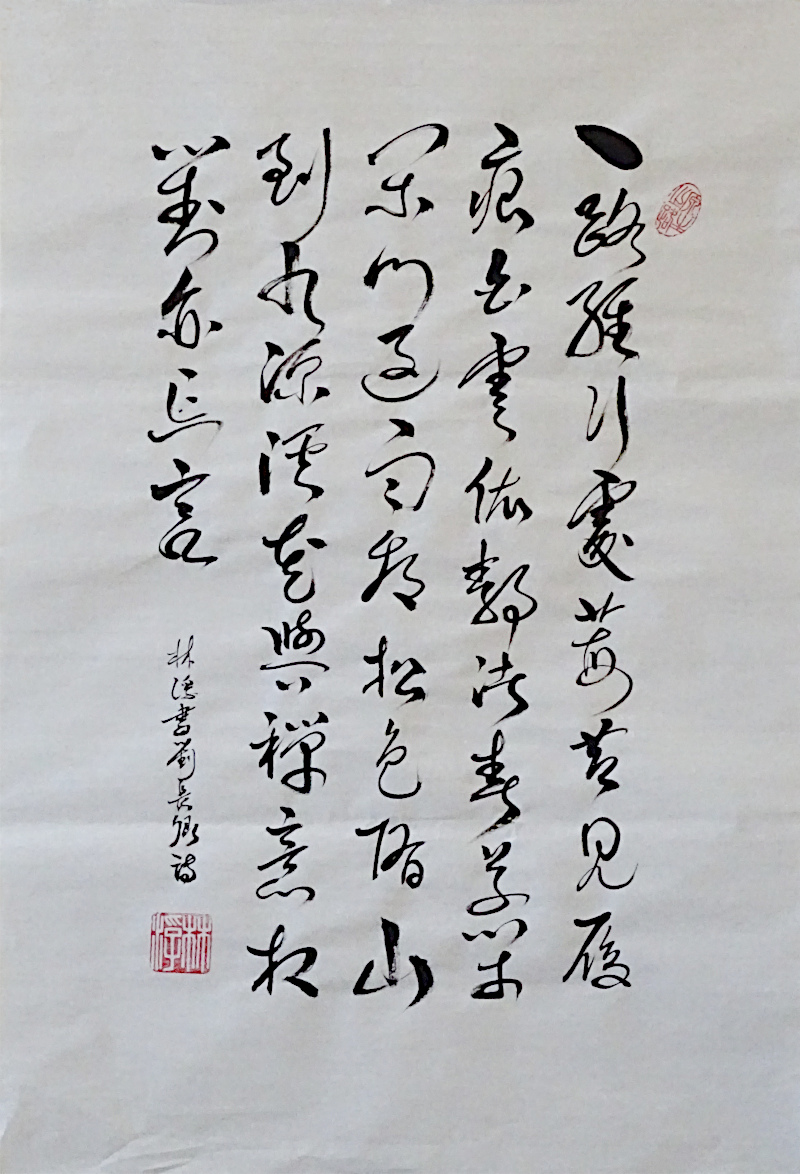 一路經行處莓苔見履
痕白雲依靜渚春草閉
閑門過雨看松色隨山
到水源溪花與禪意相
對亦忘言
林書劉長卿詩
林